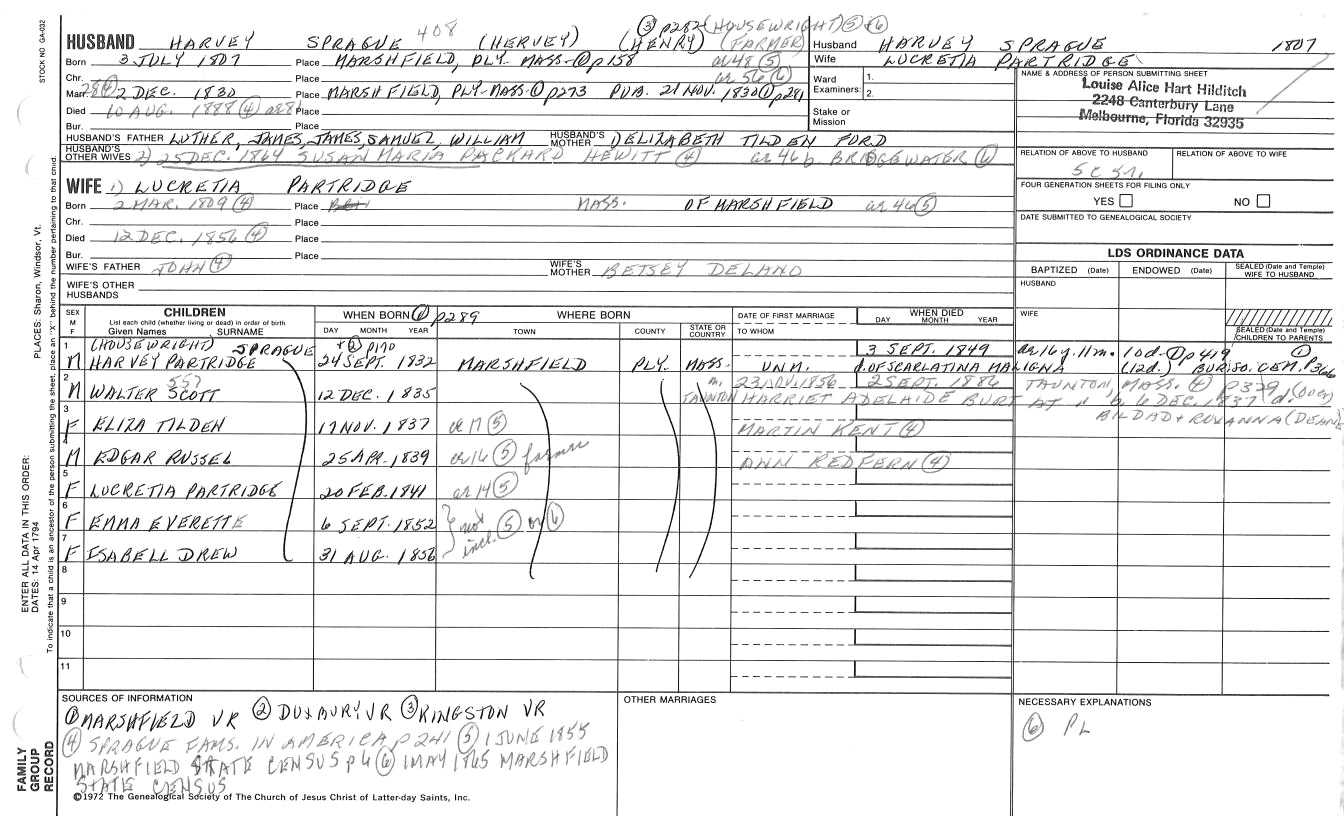 STOCK NO. GA-032
408
③ p282 (HOUSEWRIGHT) ⑤+⑥
HUSBAND HARVEY SPRAGUE (HERVEY) (HENRY) (FARMER)
Husband HARVEY SPRAGUE 1807
Wife LUCRETIA PARTRIDGE
Born 3 JULY 1807 Place MARSHFIELD, PLY. MASS-① p158 ae 48 ⑤
Chr. Place ae 56 ⑥
Ward Examiners: 1. 2.
Marr. 2 DEC. 1830 Place MARSHFIELD, PLY-MASS-① p273 PUB. 21 NOV. 1830 ① p281
Died 10 AUG. 1888 ④ Place
Stake or Mission
Bur. Place
NAME & ADDRESS OF PERSON SUBMITTING SHEET
Louise Alice Hart Hilditch
2248 Canterbury Lane
Melbourne, Florida 32935
HUSBAND'S FATHER LUTHER, JAMES, JAMES, SAMUEL, WILLIAM HUSBAND'S MOTHER ELIZABETH TILDEN FORD
HUSBAND'S OTHER WIVES 2) 25 DEC. 1864 SUSAN MARIA PACKARD HEWITT ④ ae 46 b BRIDGEWATER ⑥
RELATION OF ABOVE TO HUSBAND RELATION OF ABOVE TO WIFE
FOUR GENERATION SHEETS FOR FILING ONLY
YES NO
DATE SUBMITTED TO GENEALOGICAL SOCIETY
WIFE 1) LUCRETIA PARTRIDGE
Born 2 MAR. 1809 ④ Place MASS. OF MARSHFIELD ae 46 ⑤
Chr. Place
Died 12 DEC. 1856 ④ Place
Bur. Place
WIFE'S FATHER JOHN ④ WIFE'S MOTHER BETSEY DELANO
WIFE'S OTHER HUSBANDS
LDS ORDINANCE DATA
BAPTIZED (Date) ENDOWED (Date) SEALED (Date and Temple) WIFE TO HUSBAND
HUSBAND
WIFE
SEALED (Date and Temple) CHILDREN TO PARENTS
SEX M F
CHILDREN
List each child (whether living or dead) in order of birth
Given Names SURNAME
WHEN BORN ① p289
DAY MONTH YEAR
+ ② p170
WHERE BORN
TOWN COUNTY STATE OR COUNTRY
DATE OF FIRST MARRIAGE
TO WHOM
WHEN DIED
DAY MONTH YEAR
1 (HOUSEWRIGHT) SPRAGUE 3 SEPT. 1849 ae 16 y. 11 m. 10 d-① p419 ①
M HARVEY PARTRIDGE 24 SEPT. 1832 MARSHFIELD PLY. MASS. UNM. d. OF SCARLATINA MALIGNA (12d.) BUR. SO. CEM. p366
2 557 m. 23 NOV. 1856 2 SEPT. 1886 TAUNTON, MASS. ④ p379 (over)
M WALTER SCOTT 12 DEC. 1835 TAUNTON HARRIET ADELAIDE BURT AT " b 6 DEC. 1837 d.
BILDAD + ROXANNA (DEANE
3
F ELIZA TILDEN 17 NOV. 1837 ae 17 ⑤ MARTIN KENT ④
4
M EDGAR RUSSEL 25 APR. 1839 ae 16 ⑤ farmer ANN REDFERN ④
5
F LUCRETIA PARTRIDGE 20 FEB. 1841 ae 14 ⑤
6
F EMMA EVERETTE 6 SEPT. 1852 not incl. ⑤ or ⑥
7
F ISABELL DREW 31 AUG. 1856
8
9
10
11
SOURCES OF INFORMATION
① MARSHFIELD VR ② DUXBURY VR ③ KINGSTON VR
④ SPRAGUE FAMS. IN AMERICA p 241 ⑤ 1 JUNE 1855
MARSHFIELD STATE CENSUS p 6 ⑥ 1 MAY 1865 MARSHFIELD
STATE CENSUS
OTHER MARRIAGES
NECESSARY EXPLANATIONS
⑥ PL
©1972 The Genealogical Society of The Church of Jesus Christ of Latter-day Saints, Inc.
PLACES: Sharon, Windsor, Vt.
ENTER ALL DATA IN THIS ORDER:
DATES: 14 Apr 1794
To indicate that a child is an ancestor of the person submitting the sheet, place an "X" behind the number pertaining to that child.
FAMILY GROUP RECORD